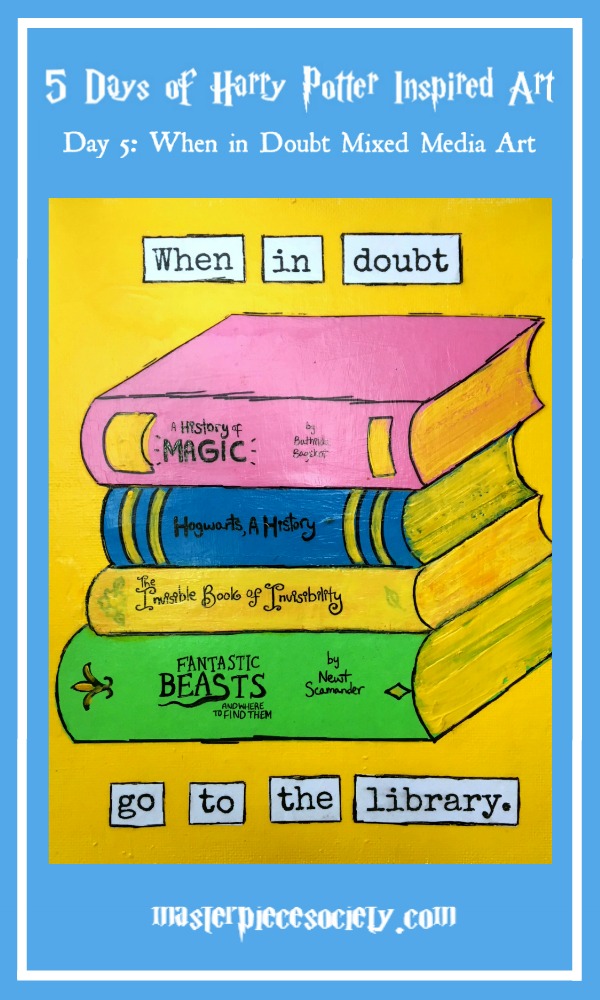 5 Days of Harry Potter Inspired Art
Day 5: When in Doubt Mixed Media Art
When in doubt
A History of
MAGIC
by
Bathilda
Bagshot
Hogwarts, A History
The
Invisible Book of Invisibility
FANTASTIC
BEASTS
AND WHERE
TO FIND THEM
by
Newt
Scamander
go to the library.
masterpiecesociety.com